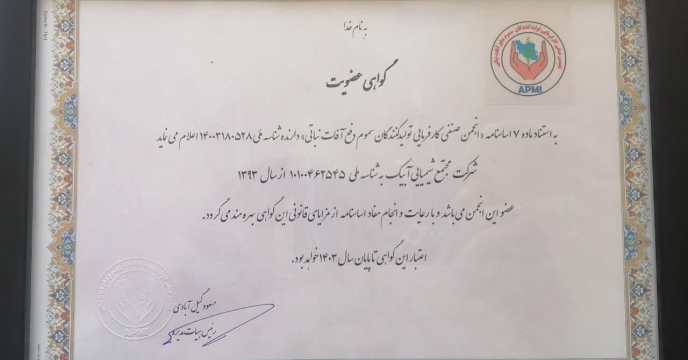 به نام خدا
APMI
گواهی عضویت
به استناد ماده ۷ اساسنامه «انجمن صنفی کارفرمایی تولیدکنندگان سموم دفع آفات نباتی» دارنده شناسه ملی ۱۴۰۰۳۱۸۰۵۲۸ اعلام می نماید
شرکت مجتمع شیمیایی آبیک به شناسه ملی ۱۰۱۰۰۴۶۲۵۴۵ از سال ۱۳۹۳
عضو این انجمن می باشد و با رعایت و انجام مفاد اساسنامه از مزایای قانونی این گواهی بهره مند می گردد.
اعتبار این گواهی تا پایان سال ۱۴۰۳ خواهد بود.
مسعود گیل آبادی
رئیس هیات مدیره